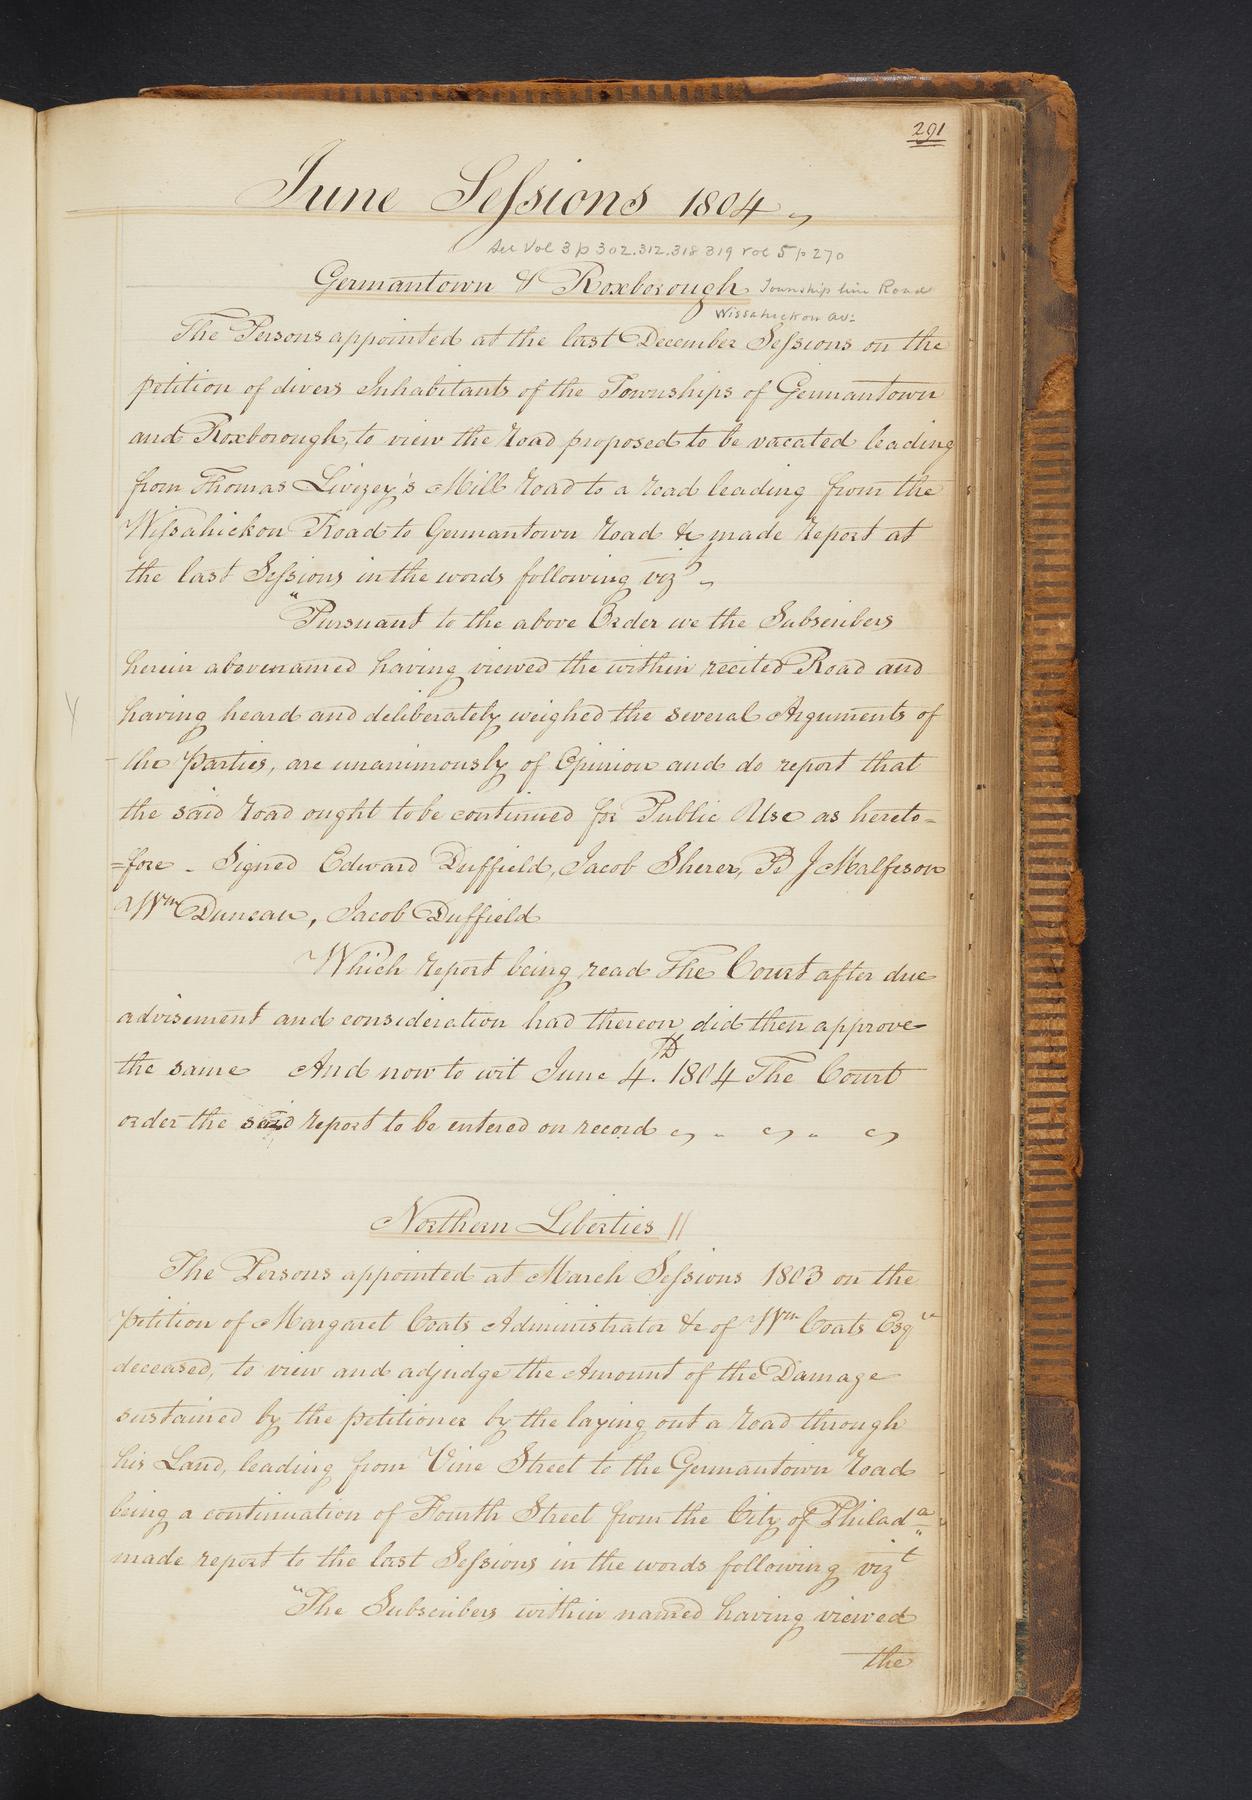 291
June Sessions 1804
See Vol 3 p 302.312.318 319 vol 5 p 270
Germantown & Roxborough Township line Road
Wissahickon av:
The Persons appointed at the last December Sessions on the
petition of divers Inhabitants of the Townships of Germantown
and Roxborough, to view the road proposed to be vacated leading
from Thomas Livezey's Mill road to a road leading from the
Wissahickon Road to Germantown road &c made report at
the last Sessions in the words following vizt
"Pursuant to the above Order we the Subscribers
herein abovenamed having viewed the within recited Road and
having heard and deliberately weighed the several Arguments of
the Parties, are unanimously of Opinion and do report that
the said road ought to be continued for Public Use as hereto=
=fore - Signed Edward Duffield, Jacob Sherer, J Malfeson
Wm Duncan, Jacob Duffield
Which report being read The Court after due
advisement and consideration had thereon did then approve
the same And now to wit June 4th. 1804 The Court
order the said report to be entered on record
Northern Liberties
The Persons appointed at March Sessions 1803 on the
petition of Margaret Coats Administrator &c of Wm Coats Esqre
deceased, to view and adjudge the Amount of the Damage
sustained by the petitioner by the laying out a road through
his Land, leading from Vine Street to the Germantown road
being a continuation of Fourth Street from the City of Philada
made report to the last Sessions in the words following vizt
"The Subscribers within named having viewed
the